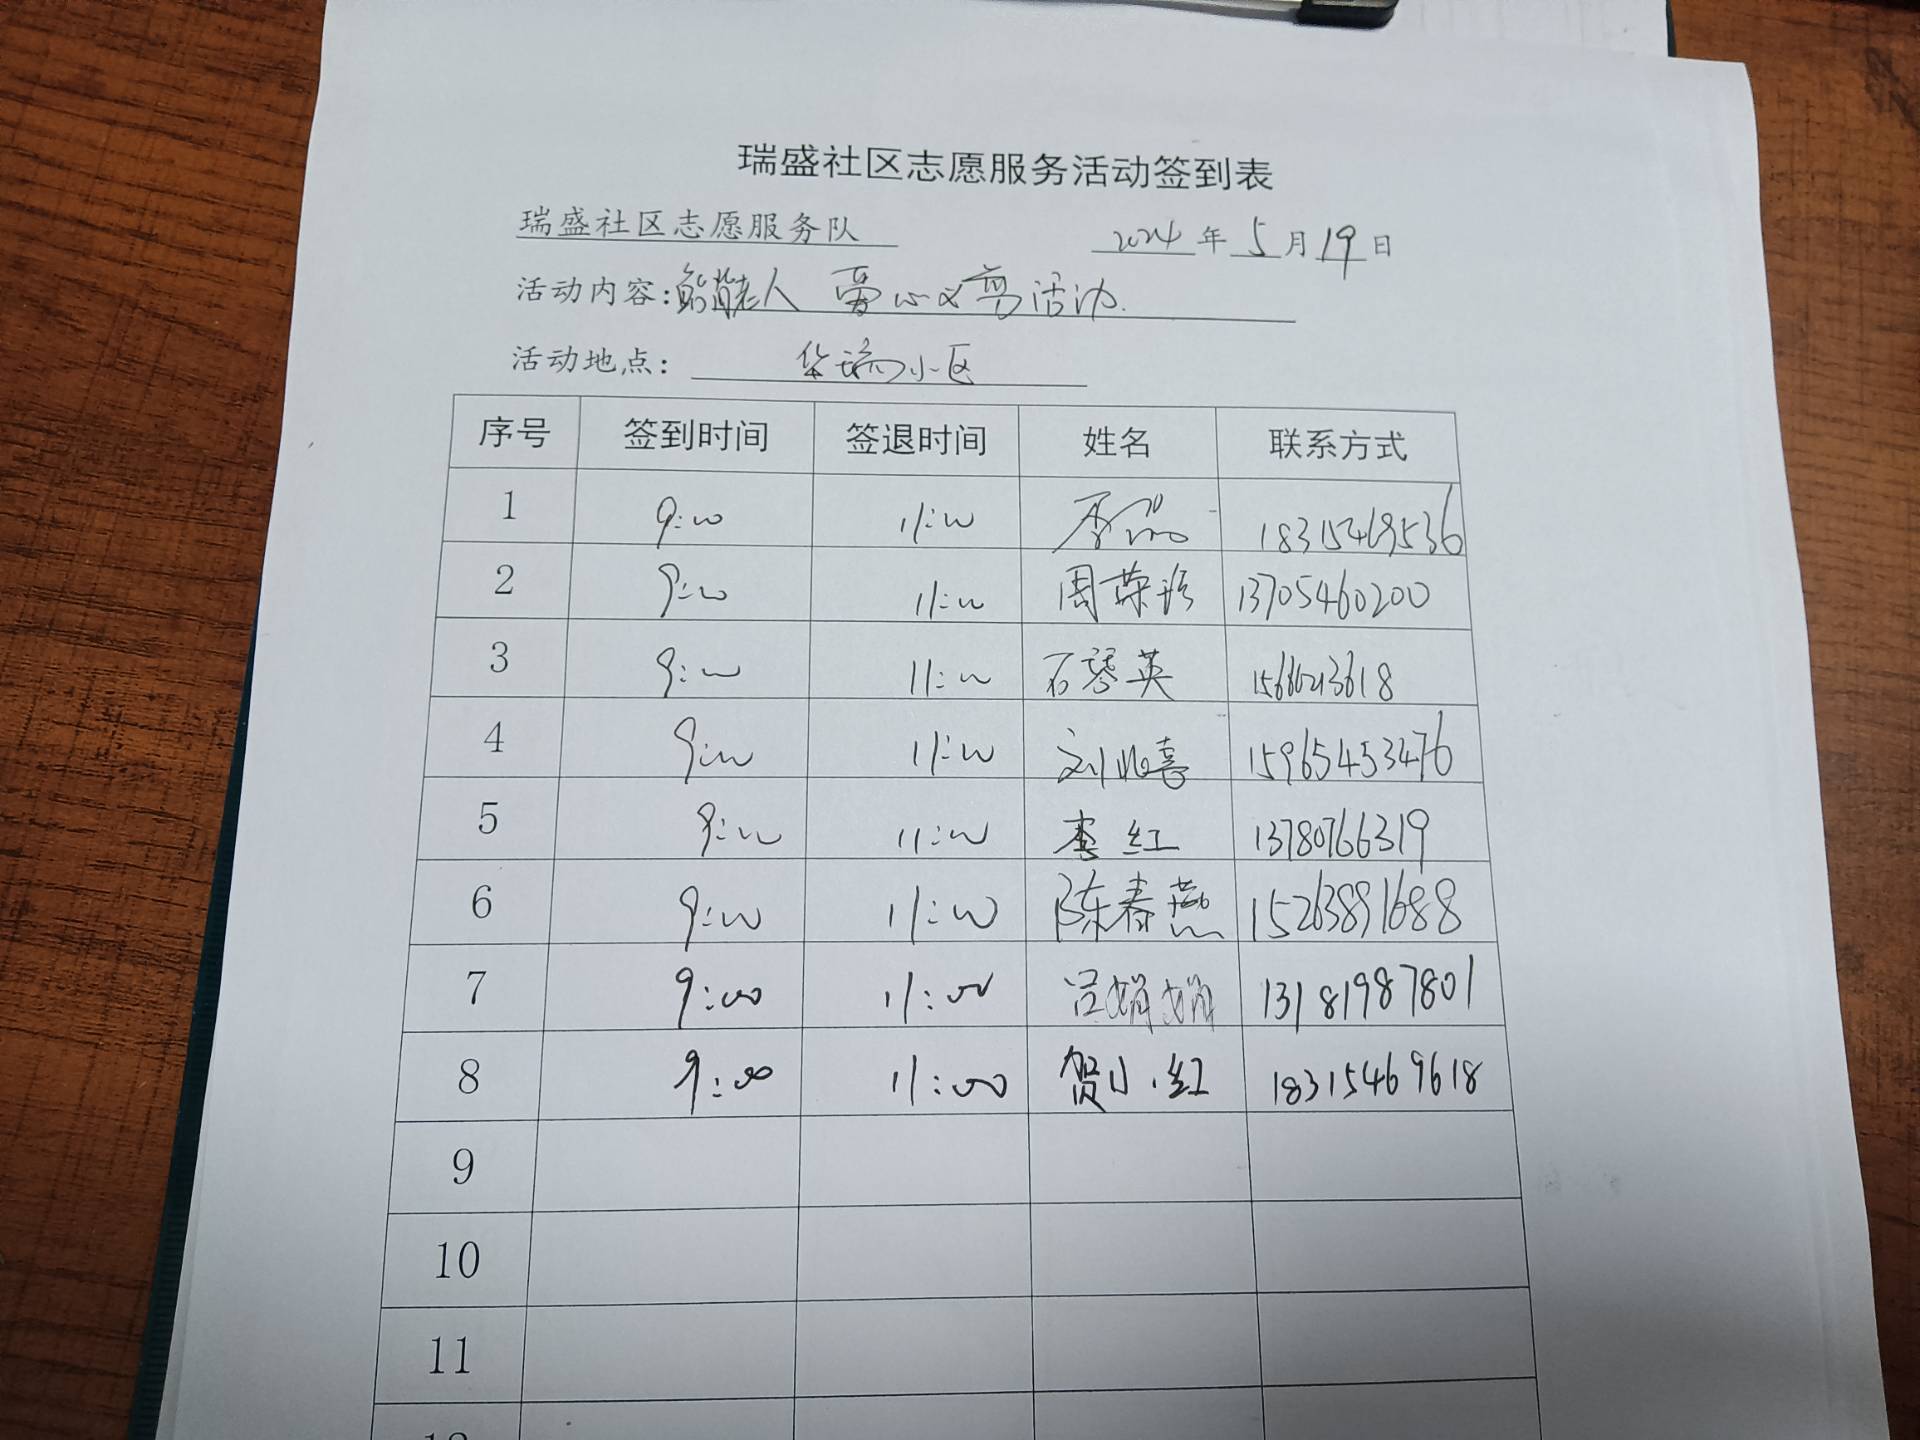 瑞盛社区志愿服务活动签到表
瑞盛社区志愿服务队 2024年5月19日
活动内容:老人 爱心义剪活动.
活动地点: 华瑞小区
序号 签到时间 签退时间 姓名 联系方式
1 9:00 11:00 李 18315469536
2 9:00 11:00 周荣珍 13705460200
3 9:00 11:00 石琴英
4 9:00 11:00 刘兆喜 15965453476
5 9:00 11:00 李红 13780766319
6 9:00 11:00 陈春燕 15263891688
7 9:00 11:00 吕娟娟 13181987801
8 9:00 11:00 贺小红 18315469618
9
10
11